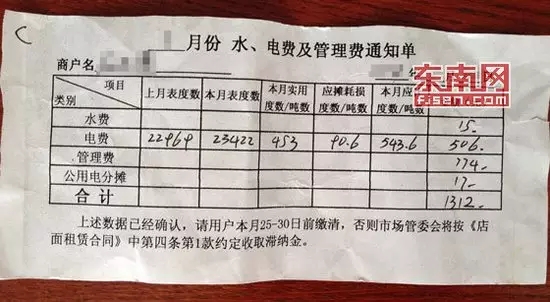 月份 水、电费及管理费通知单
商户名
东南网
fjsen.com
项目 类别 上月表度数 本月表度数 本月实用度数/吨数 应摊耗损度数/吨数 本月应 度数/吨数
水费 15.
电费 22969 23422 453 90.6 543.6 506.
管理费 774.
公用电分摊 17.
合计 1312.
上述数据已经确认，请用户本月25-30日前缴清，否则市场管委会将按《店
面租赁合同》中第四条第1款约定收取滞纳金。